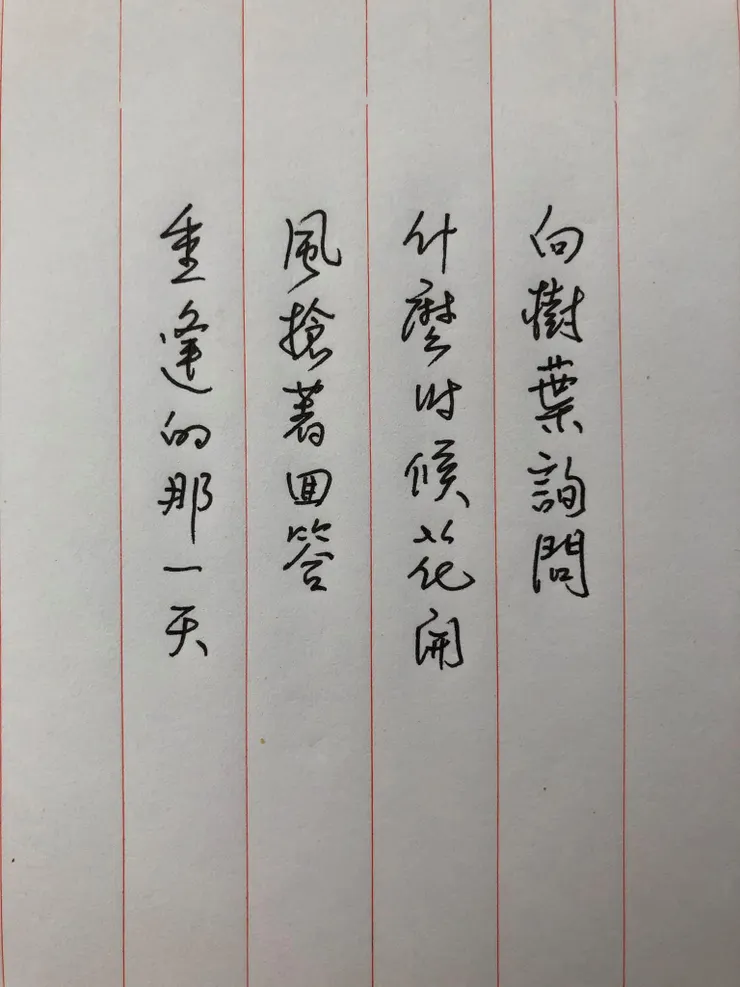 向樹葉詢問
什麼时候花開
風搶著回答
重逢的那一天